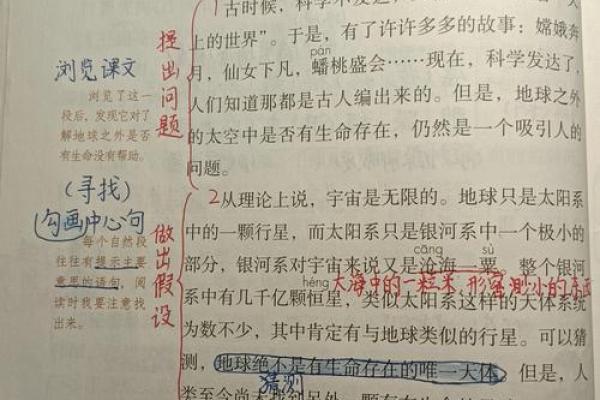 1古时候，科学不发达，
上的世界”。于是，有了许许多多的故事：嫦娥奔
pān
月，仙女下凡，蟠桃盛会……现在，科学发达了，
人们知道那都是古人编出来的。但是，地球之外
的太空中是否有生命存在，仍然是一个吸引人的
问题。
2从理论上说，宇宙是无限的。地球只是太阳系
中的一颗行星，而太阳系只是银河系中一个极小的
cāng sù
部分，银河系对宇宙来说又是沧海一粟。整个银河
héng 大海中的一粒米，形容渺小的东西
系中有几千亿颗恒星，类似太阳系这样的天体系统
为数不少，其中肯定有与地球类似的行星。可以猜
测，地球绝不是有生命存在的唯一天体。但是，人
猜测
类至今尚未找到另外一颗有生命
提出问题
浏览课文
浏览了这一
段后，发现它对了
解地球之外是否
有生命没有帮助。
（寻找）
勾画中心句
做出假设
每个自然段
往往有提示主要
意思的语句，阅
读时我要注意找
出来。